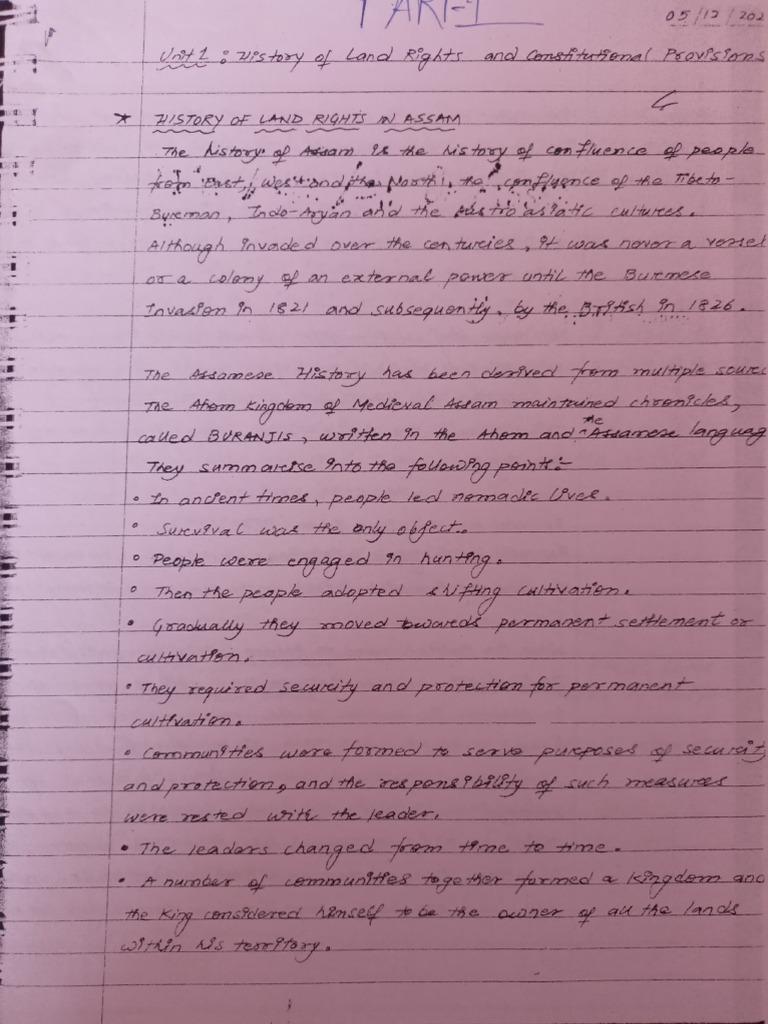 PART-1
05/12/202
Unit 1 : History of Land Rights and Constitutional Provisions
* HISTORY OF LAND RIGHTS IN ASSAM
The history of Assam is the history of confluence of people
from East, West and the North, the confluence of the Tibeto-
Burman, Indo-Aryan and the Austro asiatic cultures.
Although invaded over the centuries, it was never a vessel
or a colony of an external power until the Burmese
Invasion in 1821 and subsequently, by the British in 1826.
The Assamese History has been derived from multiple sourc
The Ahom Kingdom of Medieval Assam maintained chronicles,
called BURANJIS, written in the Ahom and the Assamese languag
They summarise into the following point:-
• In ancient times, people led nomadic lives.
• Survival was the only object.
• People were engaged in hunting.
• Then the people adopted shifting cultivation.
• Gradually they moved towards permanent settlement or
cultivation.
• They required security and protection for permanent
cultivation.
• Communities were formed to serve purposes of securit
and protection, and the responsibility of such measures
were rested with the leader.
• The leaders changed from time to time.
• A number of communities together formed a kingdom and
the King considered himself to be the owner of all the lands
within his territory.